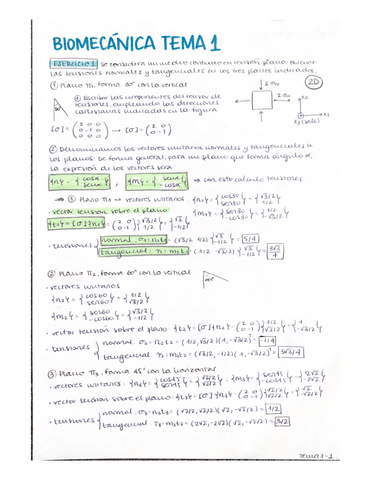 BIOMECÁNICA TEMA 1
EJERCICIO 1: Se considera un medio continuo en tensión plana, buscar
las tensiones normales y tangenciales en los tres planos indicados.
① Plano π₁, forma 30° con la vertical
2D
① Escribir las componentes del tensor de
tensiones, empleando las direcciones
cartesianas indicadas en la figura
[σ] = (2 0 0 / 0 -1 0 / 0 0 0) → [σ] = (2 0 / 0 -1)
② Denominamos los vectores unitarios normales y tangenciales a
los planos de forma general, para un plano que forma ángulo α,
la expresión de los vectores será:
{n} = {cosα / senα}, {m} = {senα / -cosα} → con esto calculo tensiones
· vector tensión sobre el plano:
· tensiones
normal:
= 5/4
tangencial:
= 3√3/4
② Plano π₂, forma 60° con la vertical
· vectores unitarios
{n₂} = {cos60 / sen60} = {1/2 / √3/2}
{m₂} = {sen60 / -cos60} = {√3/2 / -1/2}
· vector tensión sobre el plano: {t₂} = [σ]{n₂} = (2 0 / 0 -1){1/2 / √3/2} = {1 / -√3/2}
· tensiones
normal: σ₂ = n₂t₂ = (1/2, √3/2)(1, -√3/2)ᵀ = -1/4
tangencial: τ₂ = m₂t₂ = (√3/2, -1/2)(1, -√3/2)ᵀ = 3√3/4
③ Plano π₃, forma 45° con la horizontal
· vectores unitarios: {n₃} = {cos45 / sen45} = {√2/2 / √2/2}
· vector tensión sobre el plano: {t₃} = [σ]{n₃} = (2 0 / 0 -1){√2/2 / √2/2} = {√2 / -√2/2}
· tensiones
normal: σ₃ = n₃t₃ = (√2/2, √2/2)(√2, -√2/2)ᵀ = 1/2
tangencial:
= 3/2
Tema 1-1